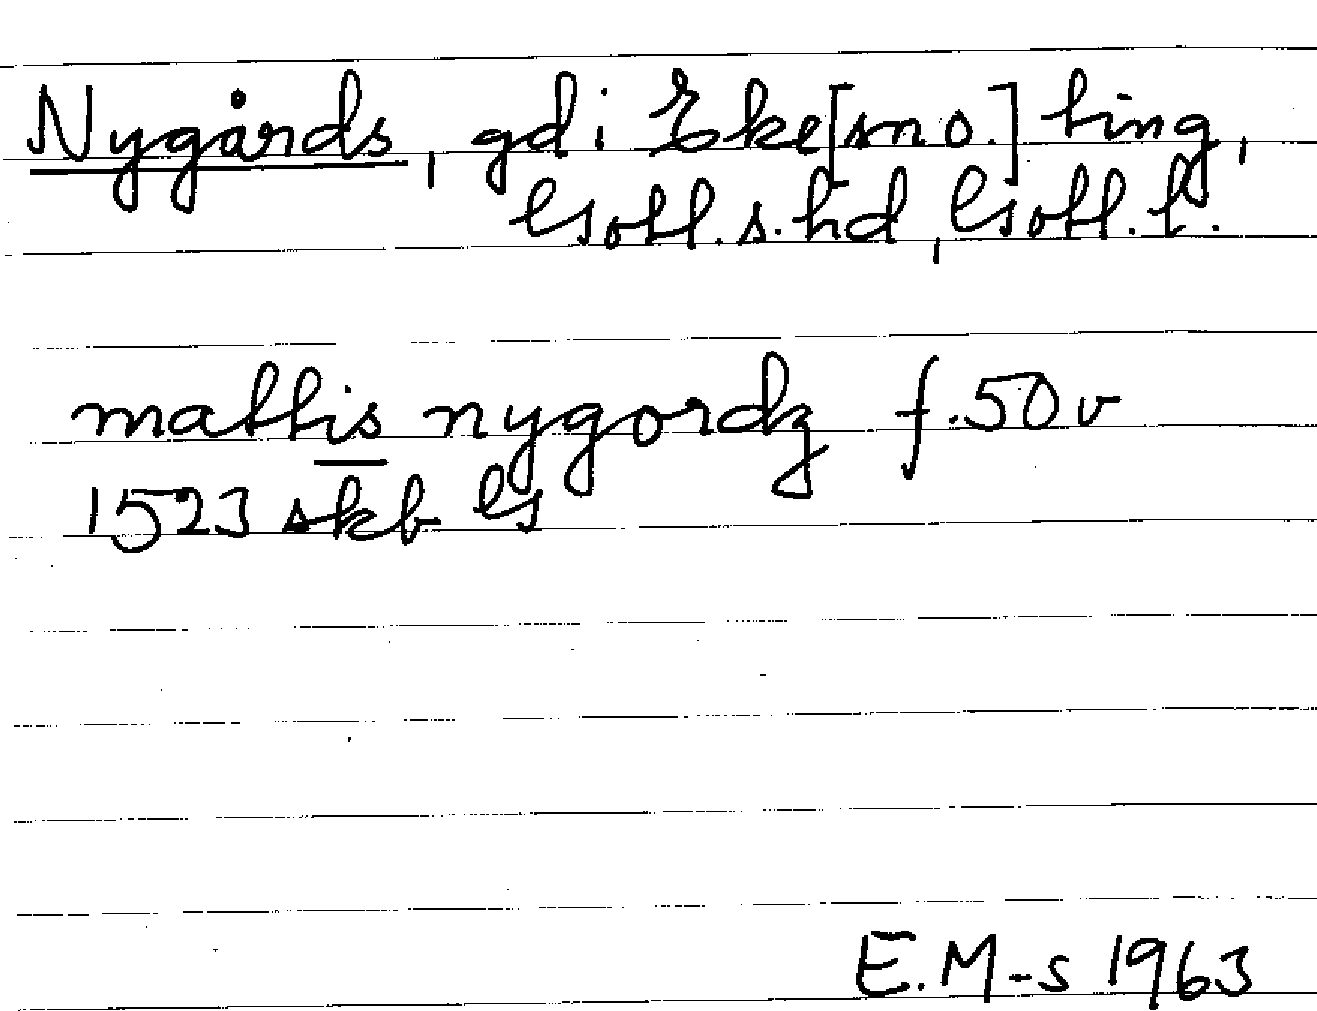 Nygårds, gd i Eke[sno.] ting,
Gotl. s. hd, Gotl. l.
mattis nygordz f. 50 v
1523 skb G
E. M-s 1963